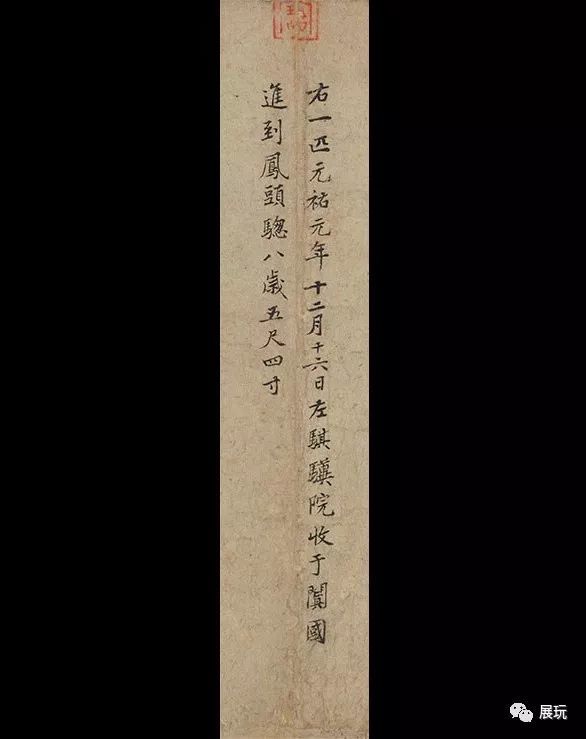 右一匹元祐元年十二月十六日左騏驥院收于闐國
進到鳳頭驄八歲五尺四寸
展玩